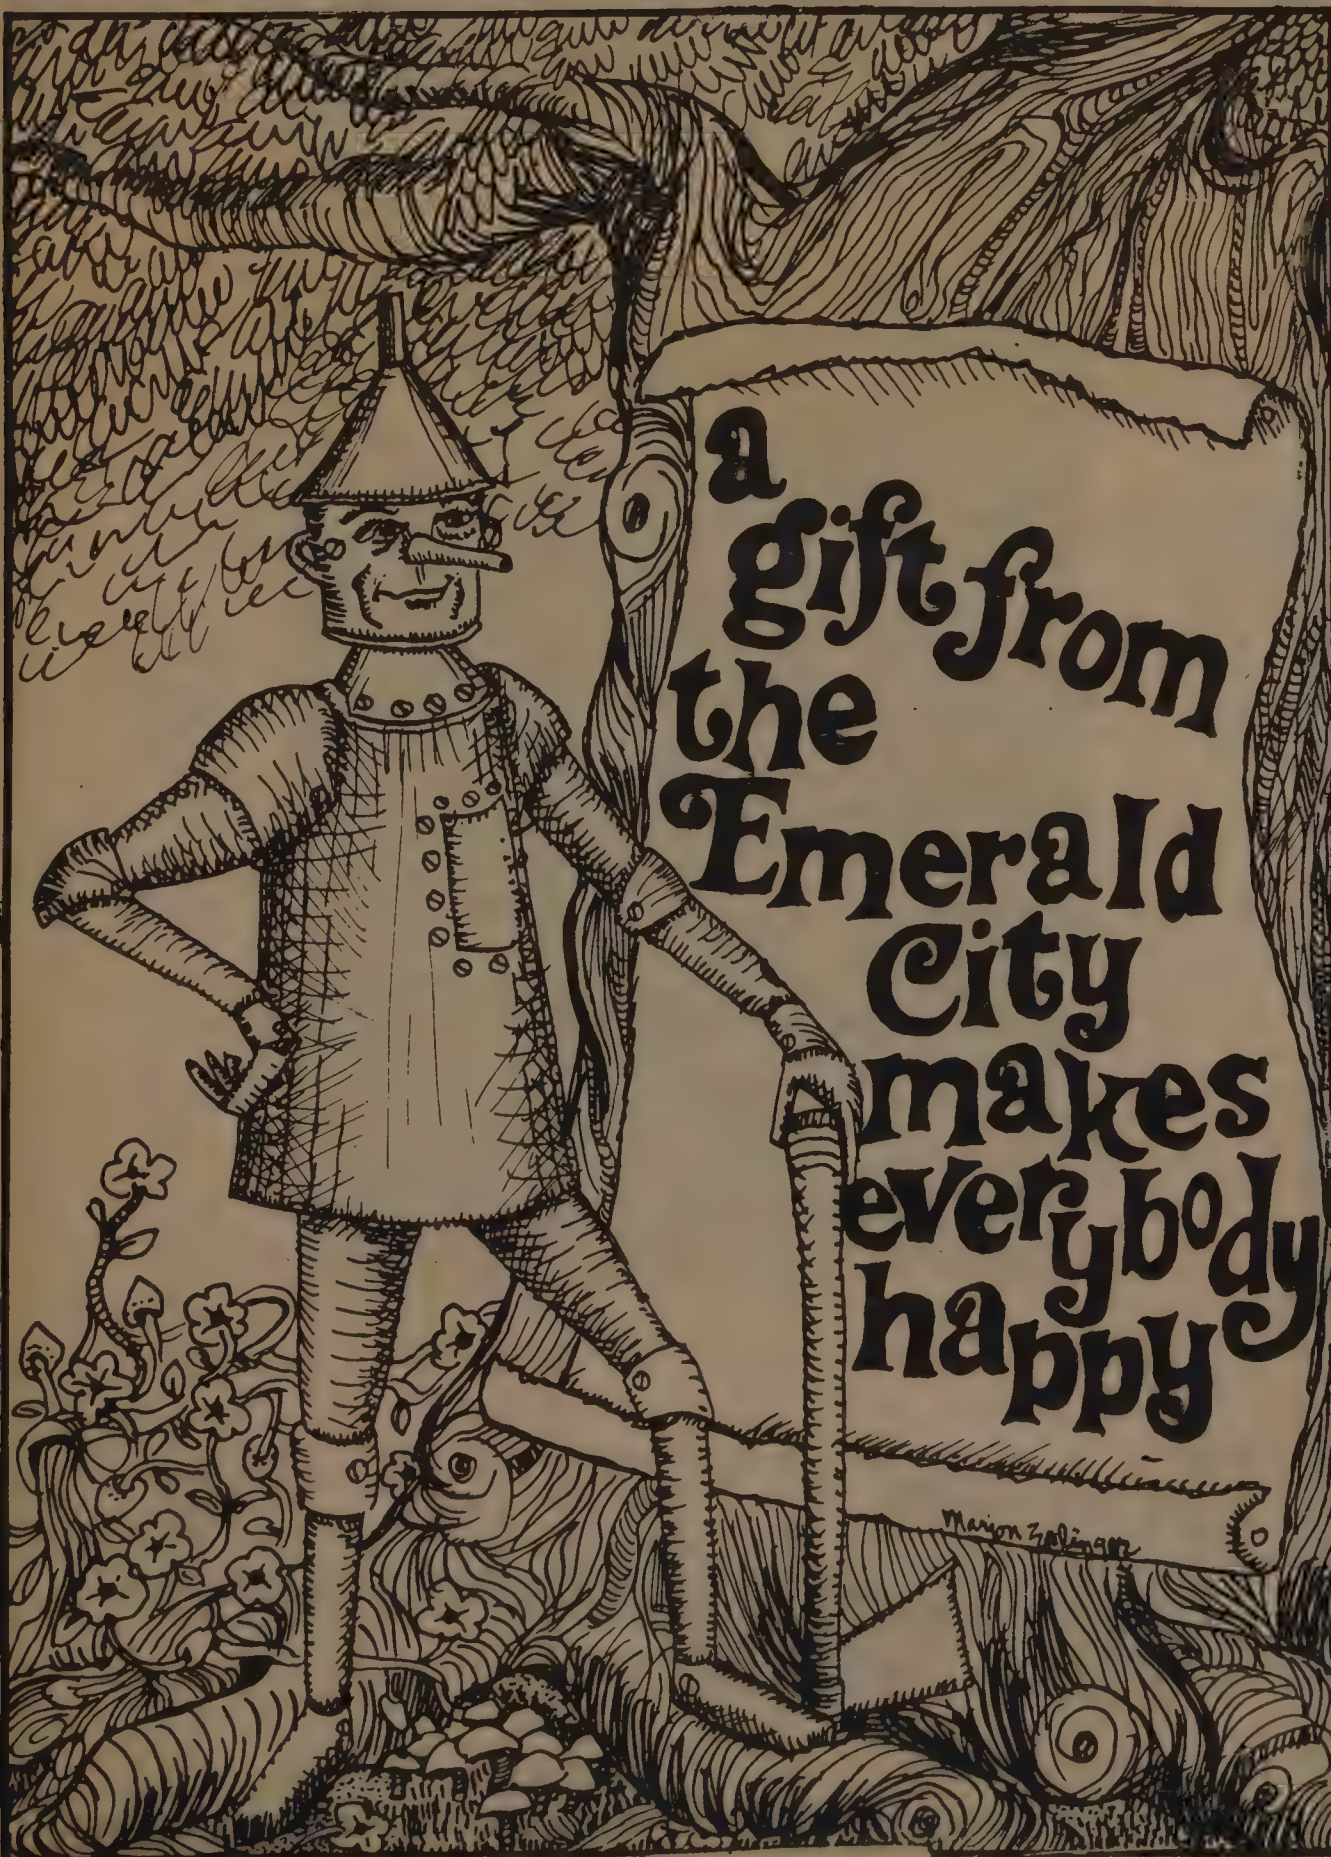 a
gift from
the
Emerald
City
makes
everybody
happy
Marion